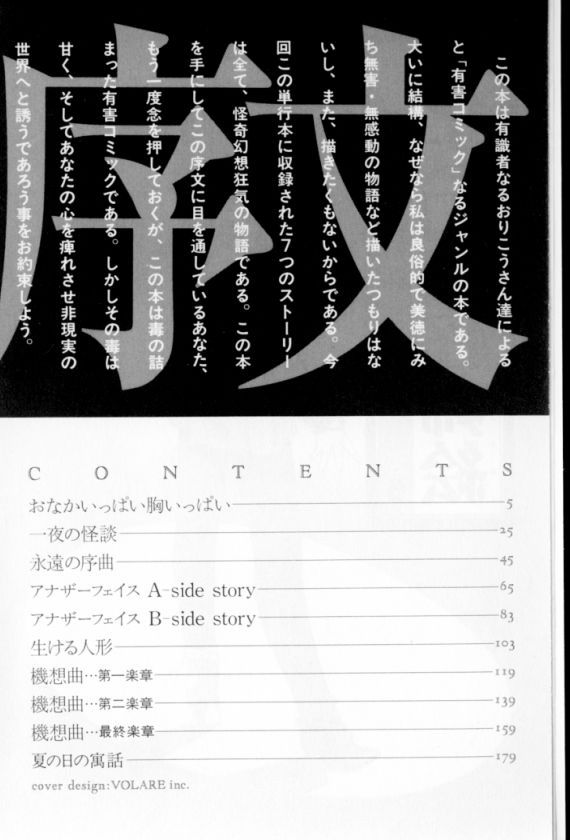 序文
この本は有識者なるおりこうさん達による
と「有害コミック」なるジャンルの本である。
大いに結構、なぜなら私は良俗的で美徳にみ
ち無害・無感動の物語など描いたつもりはな
いし、また、描きたくもないからである。今
回この単行本に収録された7つのストーリー
は全て、怪奇幻想狂気の物語である。この本
を手にしてこの序文に目を通しているあなた、
もう一度念を押しておくが、この本は毒の詰
まった有害コミックである。しかしその毒は
甘く、そしてあなたの心を痺れさせ非現実の
世界へと誘うであろう事をお約束しよう。
CONTENTS
おなかいっぱい胸いっぱい 5
一夜の怪談 25
永遠の序曲 45
アナザーフェイス A-side story 65
アナザーフェイス B-side story 83
生ける人形 103
機想曲…第一楽章 119
機想曲…第二楽章 139
機想曲…最終楽章 159
夏の日の寓話 179
cover design:VOLARE inc.